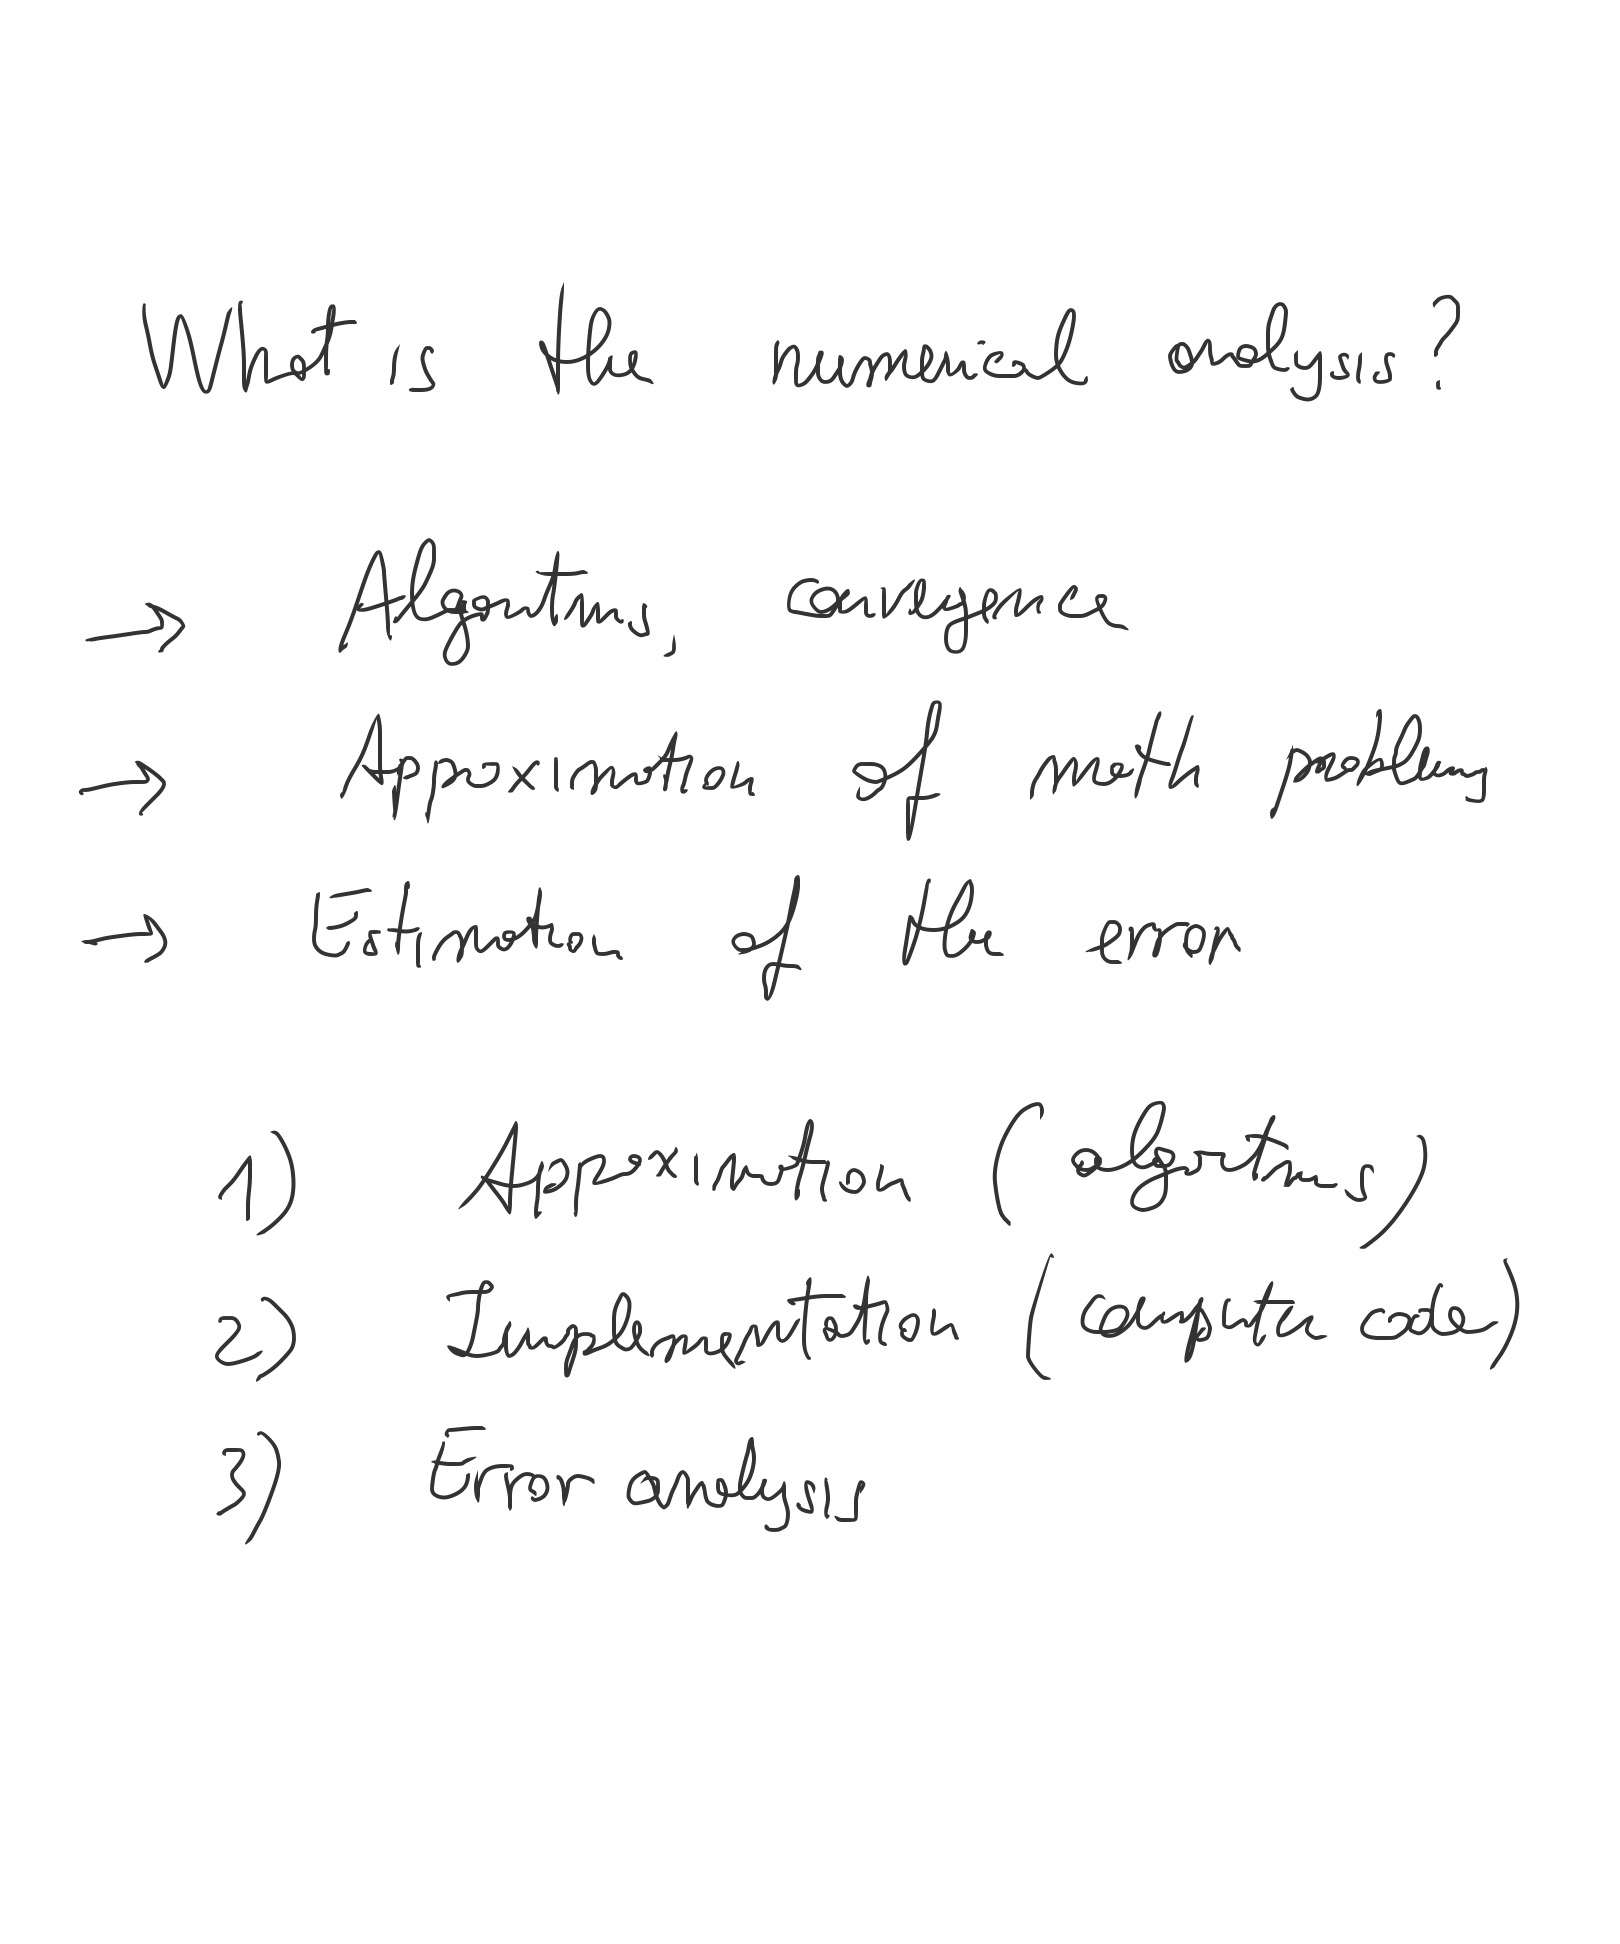 What is the numerical analysis?
→ Algoritms, convergence
→ Approximation of math problems
→ Estimation of the error
1) Approximation (algoritms)
2) Implementation (computer code)
3) Error analysis